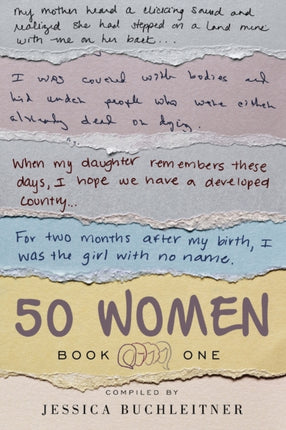 my mother heard a clicking sound and
realized she had stepped on a land mine
with me on her back...
I was covered with bodies and
hid under people who were either
already dead or dying.
When my daughter remembers these
days, I hope we have a developed
country...
For two months after my birth, I
was the girl with no name.
50 WOMEN
BOOK ONE
COMPILED BY
JESSICA BUCHLEITNER